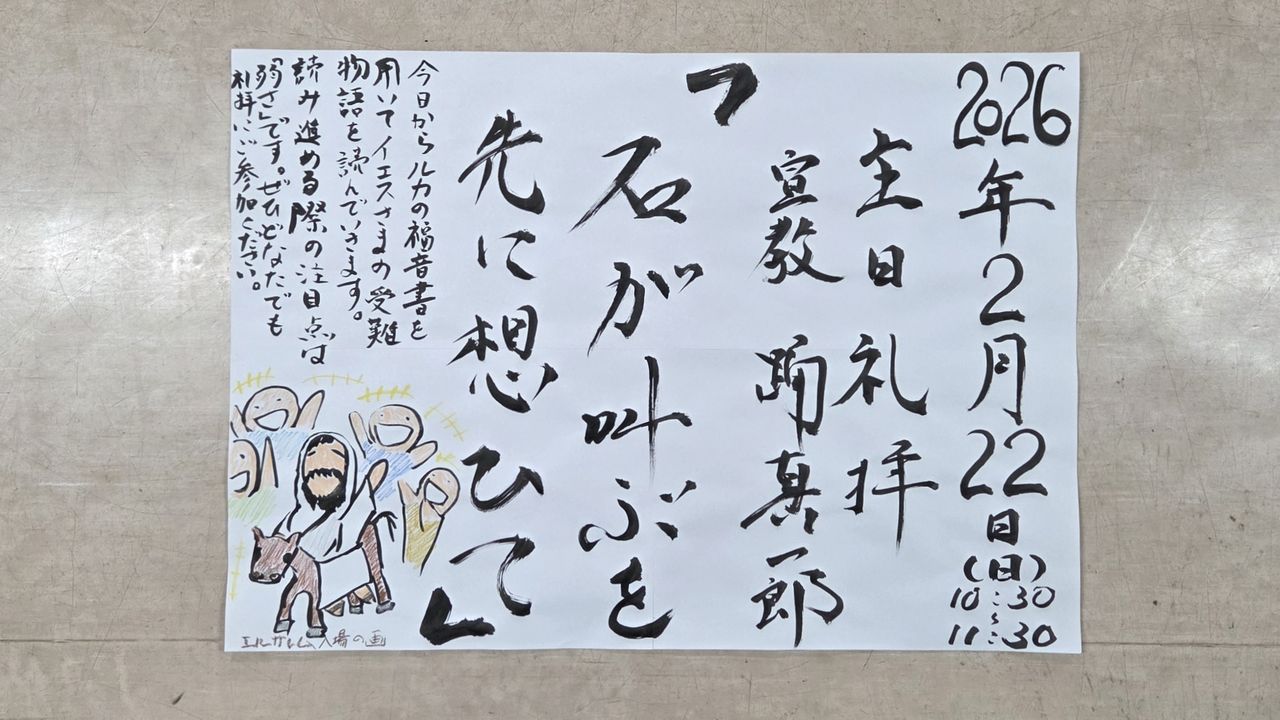 2026年2月22日(日)
10:30〜11:30
主日礼拝
宣教 踊真一郎
『石が叫ぶを
先に想ひて』
今日からルカの福音書を
用いてイエスさまの受難
物語を読んでいきます。
読み進める際の注目点は
「弱さ」です。ぜひどなたでも
礼拝にご参加ください。
エルサレム入場の画